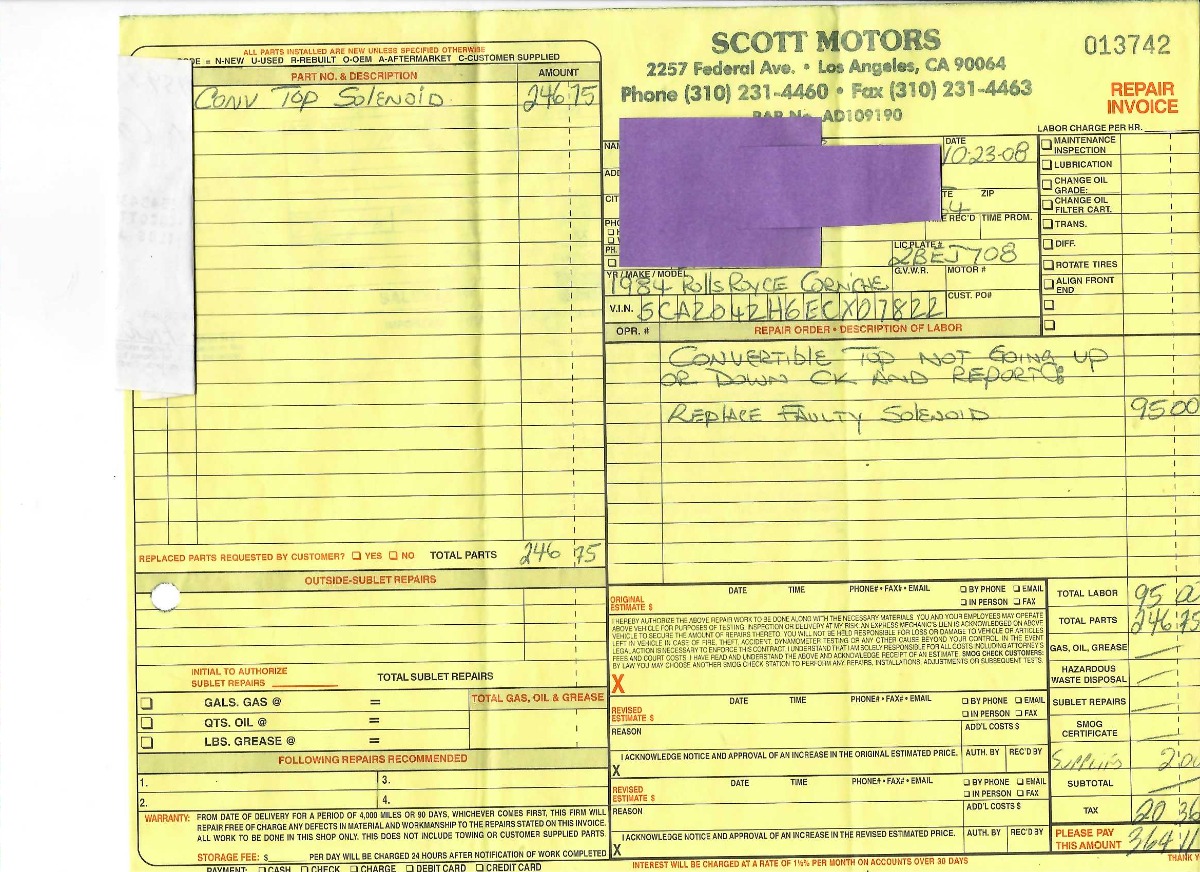 ALL PARTS INSTALLED ARE NEW UNLESS SPECIFIED OTHERWISE
= N-NEW U-USED R-REBUILT O-OEM A-AFTERMARKET C-CUSTOMER SUPPLIED
PART NO. & DESCRIPTION AMOUNT
CONV TOP SOLENOID 246 75
REPLACED PARTS REQUESTED BY CUSTOMER? YES NO TOTAL PARTS 246 75
OUTSIDE-SUBLET REPAIRS
INITIAL TO AUTHORIZE
SUBLET REPAIRS
TOTAL SUBLET REPAIRS
GALS. GAS @ =
TOTAL GAS, OIL & GREASE
QTS. OIL @ =
LBS. GREASE @ =
FOLLOWING REPAIRS RECOMMENDED
1. 3.
2. 4.
WARRANTY: FROM DATE OF DELIVERY FOR A PERIOD OF 4,000 MILES OR 90 DAYS, WHICHEVER COMES FIRST, THIS FIRM WILL
REPAIR FREE OF CHARGE ANY DEFECTS IN MATERIAL AND WORKMANSHIP TO THE REPAIRS STATED ON THIS INVOICE.
ALL WORK TO BE DONE IN THIS SHOP ONLY. THIS DOES NOT INCLUDE TOWING OR CUSTOMER SUPPLIED PARTS.
STORAGE FEE: $ PER DAY WILL BE CHARGED 24 HOURS AFTER NOTIFICATION OF WORK COMPLETED
PAYMENT: CASH CHECK CHARGE DEBIT CARD CREDIT CARD
SCOTT MOTORS
2257 Federal Ave. • Los Angeles, CA 90064
Phone (310) 231-4460 • Fax (310) 231-4463
BAR No. AD109190
013742
REPAIR
INVOICE
LABOR CHARGE PER HR.
DATE
10-23-08
ZIP
64
REC'D TIME PROM.
LIC PLATE #
2BEJ708
YR / MAKE / MODEL G.V.W.R. MOTOR #
1984 Rolls Royce CORNICHE
V.I.N. SCAZ042H6ECX07822 CUST. PO#
MAINTENANCE
INSPECTION
LUBRICATION
CHANGE OIL
GRADE:
CHANGE OIL
FILTER CART.
TRANS.
DIFF.
ROTATE TIRES
ALIGN FRONT
END
OPR. # REPAIR ORDER • DESCRIPTION OF LABOR
CONVERTIBLE TOP NOT GOING UP
OR DOWN CK AND REPORT:
REPLACE FAULTY SOLENOID 95 00
DATE TIME PHONE# • FAX# • EMAIL BY PHONE EMAIL
ORIGINAL
ESTIMATE $ IN PERSON FAX
I HEREBY AUTHORIZE THE ABOVE REPAIR WORK TO BE DONE ALONG WITH THE NECESSARY MATERIALS. YOU AND YOUR EMPLOYEES MAY OPERATE
ABOVE VEHICLE FOR PURPOSES OF TESTING, INSPECTION OR DELIVERY AT MY RISK. AN EXPRESS MECHANIC'S LIEN IS ACKNOWLEDGED ON ABOVE
VEHICLE TO SECURE THE AMOUNT OF REPAIRS THERETO. YOU WILL NOT BE HELD RESPONSIBLE FOR LOSS OR DAMAGE TO VEHICLE OR ARTICLES
LEFT IN VEHICLE IN CASE OF FIRE, THEFT, ACCIDENT, DYNAMOMETER TESTING OR ANY OTHER CAUSE BEYOND YOUR CONTROL. IN THE EVENT
LEGAL ACTION IS NECESSARY TO ENFORCE THIS CONTRACT, I UNDERSTAND THAT I AM SOLELY RESPONSIBLE FOR ALL COSTS INCLUDING ATTORNEY'S
FEES AND COURT COSTS. I HAVE READ AND UNDERSTAND THE ABOVE AND ACKNOWLEDGE RECEIPT OF AN ESTIMATE. SMOG CHECK CUSTOMERS:
BY LAW YOU MAY CHOOSE ANOTHER SMOG CHECK STATION TO PERFORM ANY REPAIRS, INSTALLATIONS, ADJUSTMENTS OR SUBSEQUENT TESTS.
X
DATE TIME PHONE# • FAX# • EMAIL BY PHONE EMAIL
REVISED
ESTIMATE $ IN PERSON FAX
REASON ADD'L COSTS $
I ACKNOWLEDGE NOTICE AND APPROVAL OF AN INCREASE IN THE ORIGINAL ESTIMATED PRICE. AUTH. BY REC'D BY
X
DATE TIME PHONE# • FAX# • EMAIL BY PHONE EMAIL
REVISED
ESTIMATE $ IN PERSON FAX
REASON ADD'L COSTS $
I ACKNOWLEDGE NOTICE AND APPROVAL OF AN INCREASE IN THE REVISED ESTIMATED PRICE. AUTH. BY REC'D BY
X
INTEREST WILL BE CHARGED AT A RATE OF 1½% PER MONTH ON ACCOUNTS OVER 30 DAYS
TOTAL LABOR 95
TOTAL PARTS 246 75
GAS, OIL, GREASE
HAZARDOUS
WASTE DISPOSAL
SUBLET REPAIRS
SMOG
CERTIFICATE
SUPPLIES 2 00
SUBTOTAL
TAX 20 36
PLEASE PAY
THIS AMOUNT 364 11
THANK